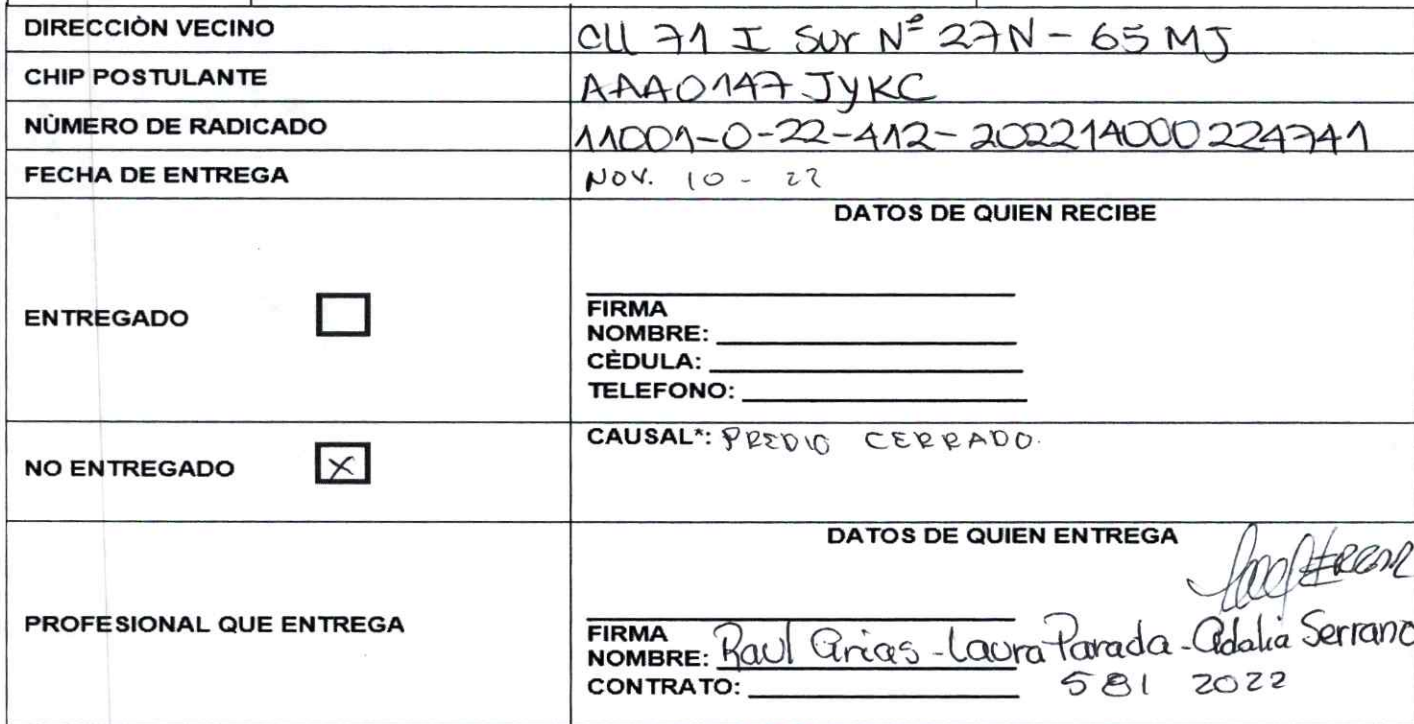 DIRECCIÒN VECINO CLL 71 I SUR Nº 27N - 65 MJ
CHIP POSTULANTE AAA0147JYKC
NÙMERO DE RADICADO 11001-0-22-412-202214000224741
FECHA DE ENTREGA NOV. 10 - 22
DATOS DE QUIEN RECIBE
ENTREGADO
FIRMA
NOMBRE:
CÈDULA:
TELEFONO:
CAUSAL*: PREDIO CERRADO.
NO ENTREGADO X
DATOS DE QUIEN ENTREGA
PROFESIONAL QUE ENTREGA
FIRMA
NOMBRE: Raul Arias - Laura Parada - Adalia Serrano
CONTRATO: 581 2022